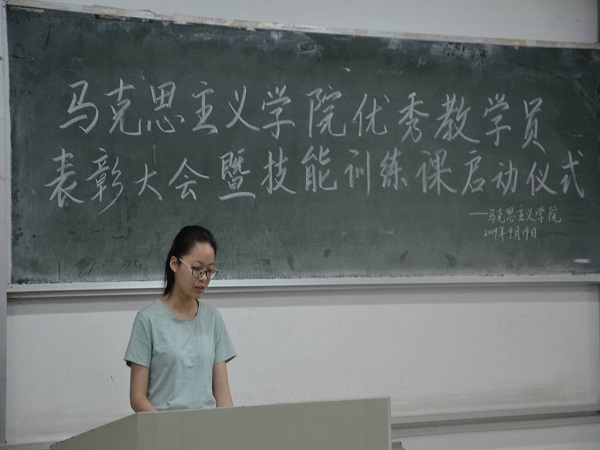 马克思主义学院优秀教学员
表彰大会暨技能训练课启动仪式
——马克思主义学院
2019年9月19日